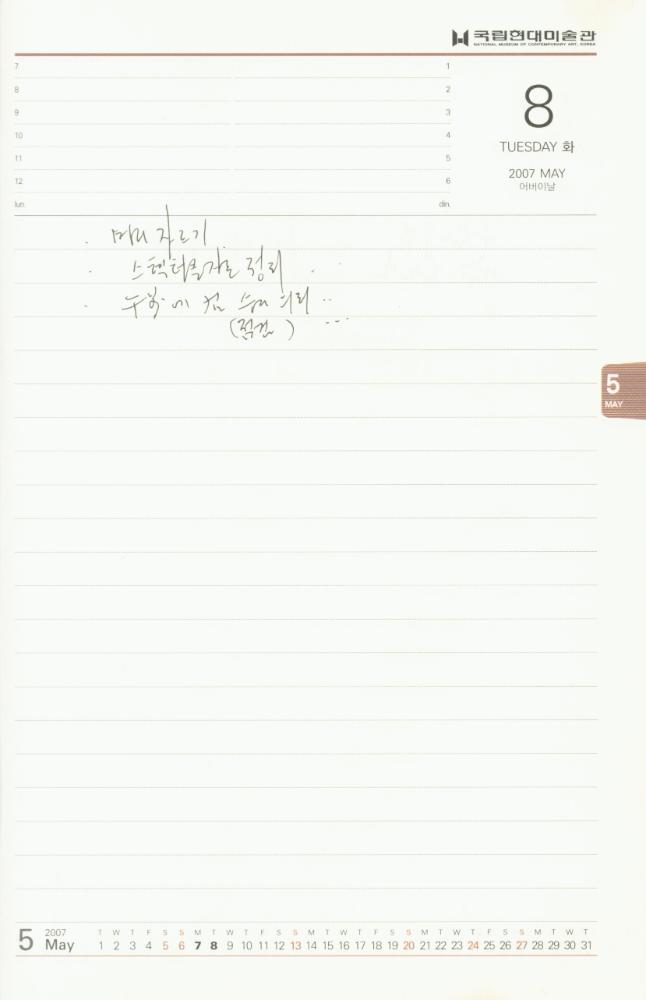 국립현대미술관
NATIONAL MUSEUM OF CONTEMPORARY ART, KOREA
7 1
8 2
9 3
10 4
11 5
12 6
lun. din.
8
TUESDAY 화
2007 MAY
어버이날
머리 자르기
스펙터클자료 정리
컴 수리 의뢰
(점검)
5
MAY
5 2007 May
T W T F S S M T W T F S S M T W T F S S M T W T F S S M T W T
1 2 3 4 5 6 7 8 9 10 11 12 13 14 15 16 17 18 19 20 21 22 23 24 25 26 27 28 29 30 31